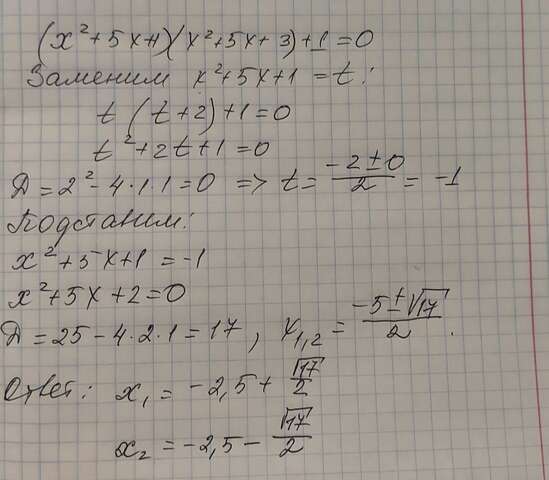 (x²+5x+1)(x²+5x+3)+1=0
Заменим x²+5x+1=t:
t(t+2)+1=0
t²+2t+1=0
Д=2²-4·1·1=0 => t=(-2±0)/2=-1
Подставим:
x²+5x+1=-1
x²+5x+2=0
Д=25-4·2·1=17, x₁,₂=(-5±√17)/2.
Ответ: x₁=-2,5+√17/2
x₂=-2,5-√17/2